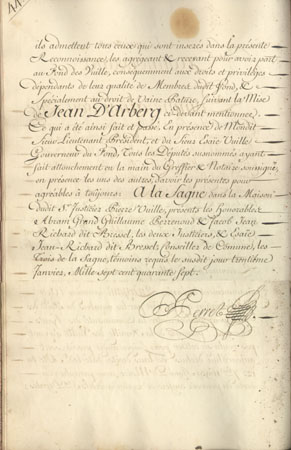 ils admettent tous ceux qui sont inserés dans la présente
Reconnoissance, les agregeant & recevant pour avoir part
au Fond des Vuille, consequemment aux droits et privilèges
dépendants de leur qualité de Membres dudit Fond, &
Spécialement au droit de Vaine Pature, suivant la Mise
de Jean D'Arberg ci-devant mentionnée.
Ce qui a été ainsi fait et passé. En présence de Mondit
Sieur Lieutenant Président, et du Sieur Esaïe Vuille
Gouverneur du Fond, Tous les Députés susnommés ayant
fait attouchement en la main du Greffier & Notaire soussigné
en présence les uns des autres, d'avoir les présentes pour
agréables à toujours. A la Sagne dans la Maison
dudit Sr. Justicier Pierre Vuille, présents les Honorables
Abram Grand Guillaume Perrenoud & Jacob Jean
Richard dit Bressel, les deux Justiciers, & Esaïe
Jean-Richard dit Bressel, Conseiller de Commune, les
Trois de la Sagne, témoins requis le susdit jour trentième
Janvier, Mille sept cent quarante sept.
Perret